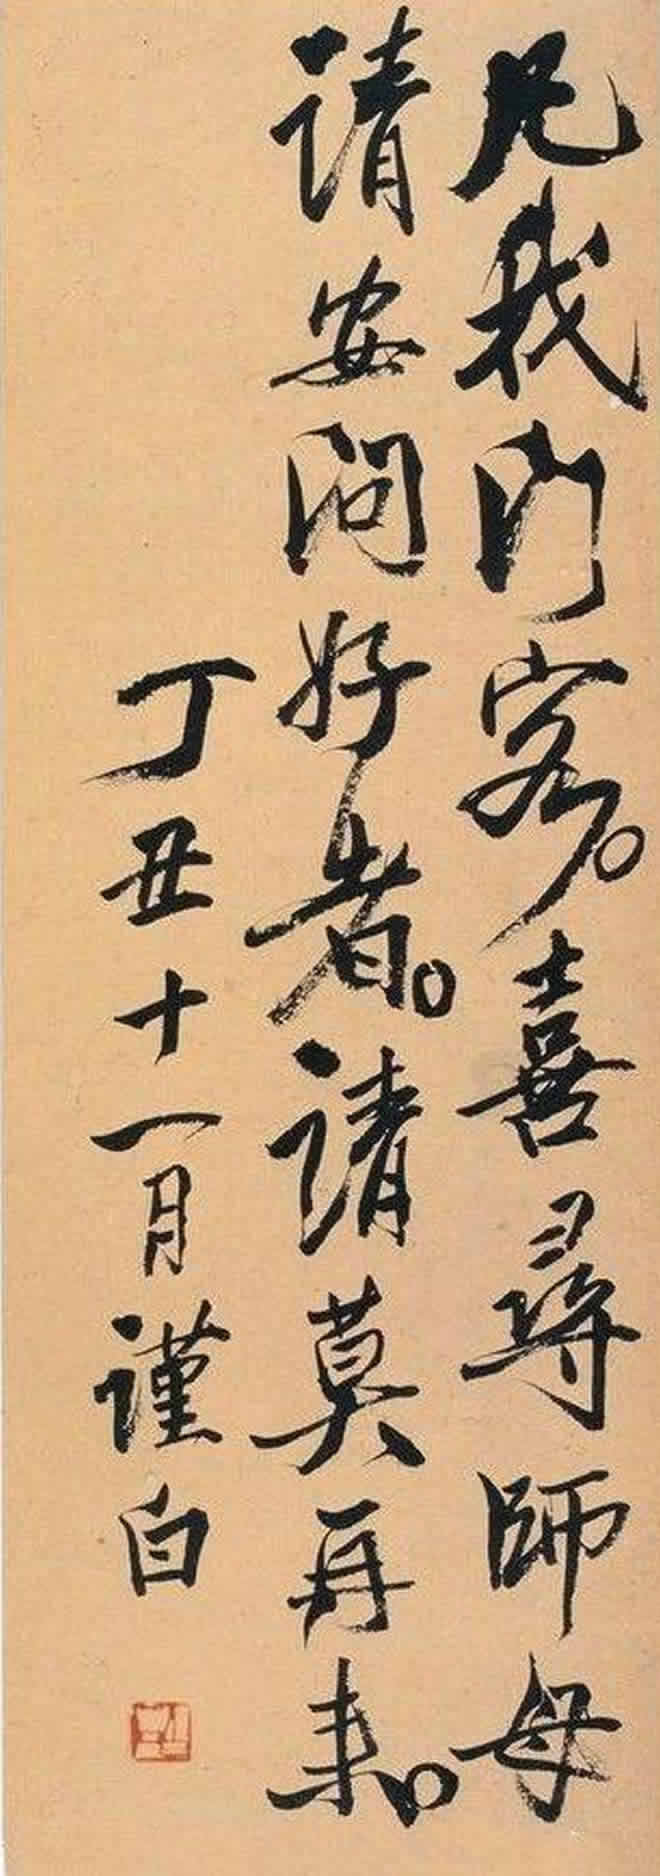 凡我门客。喜尋師母
请安问好者。请莫再来。
丁丑十一月謹白